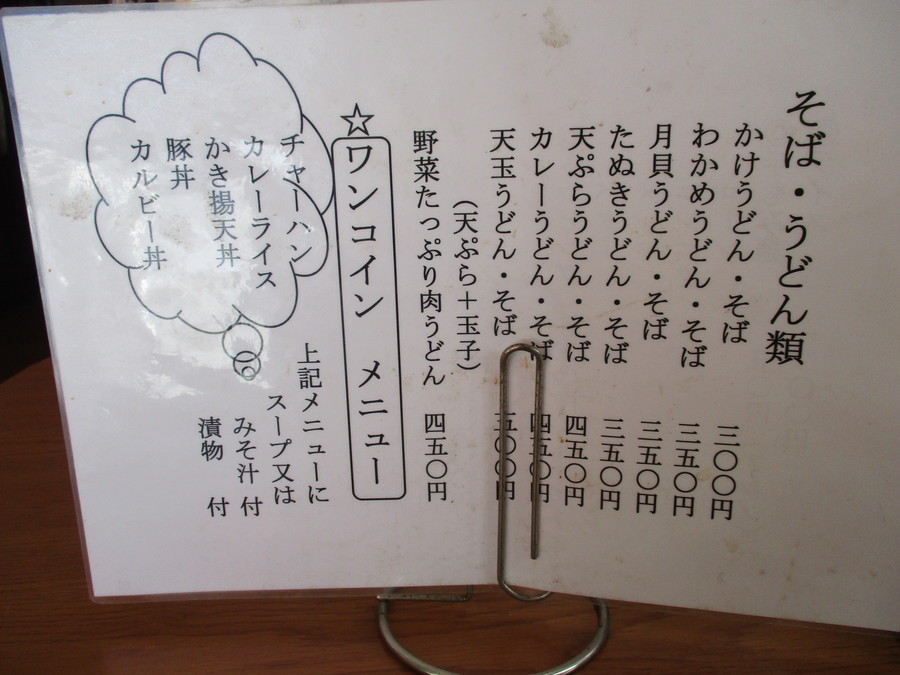 そば・うどん類
かけうどん・そば 三〇〇円
わかめうどん・そば 三五〇円
月貝うどん・そば 三五〇円
たぬきうどん・そば 三五〇円
天ぷらうどん・そば 四五〇円
カレーうどん・そば 四五〇円
天玉うどん・そば 五〇〇円
（天ぷら＋玉子）
野菜たっぷり肉うどん 四五〇円
☆ワンコイン メニュー
チャーハン
カレーライス
かき揚天丼
豚丼
カルビー丼
上記メニューに
スープ又は
みそ汁 付
漬物 付